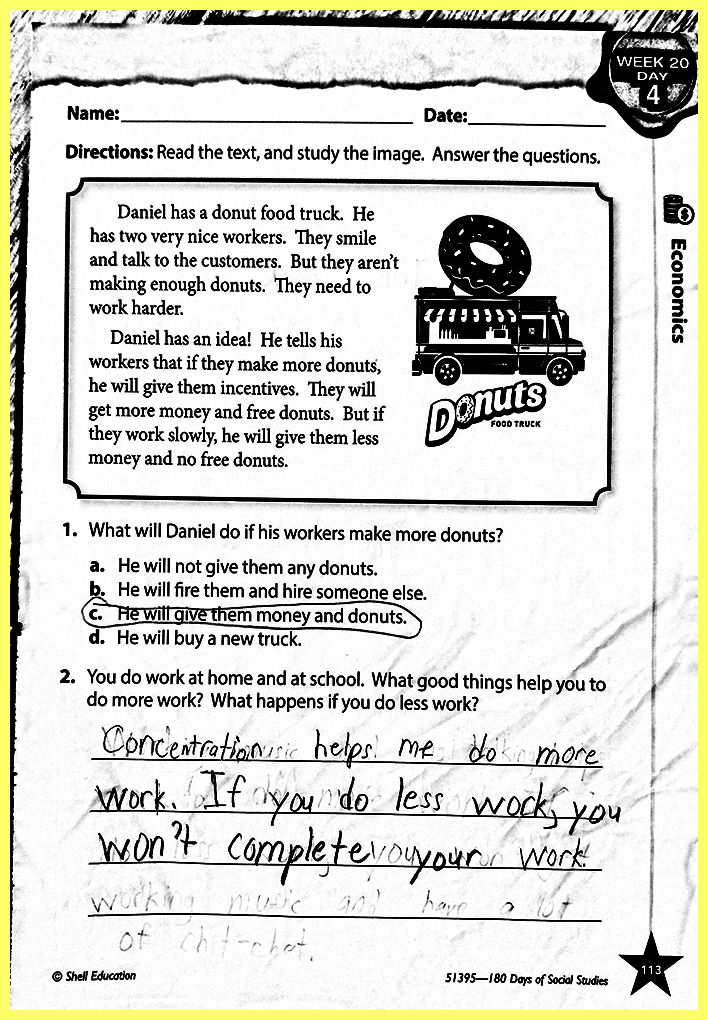 WEEK 20
DAY
4
Name: Date:
Directions: Read the text, and study the image. Answer the questions.
Economics
Daniel has a donut food truck. He
has two very nice workers. They smile
and talk to the customers. But they aren't
making enough donuts. They need to
work harder.
Daniel has an idea! He tells his
workers that if they make more donuts,
he will give them incentives. They will
get more money and free donuts. But if
they work slowly, he will give them less
money and no free donuts.
Donuts
FOOD TRUCK
1. What will Daniel do if his workers make more donuts?
a. He will not give them any donuts.
b. He will fire them and hire someone else.
c. He will give them money and donuts.
d. He will buy a new truck.
2. You do work at home and at school. What good things help you to
do more work? What happens if you do less work?
Concentration helps me do more
work. If you do less work, you
won't complete your work.
working music and have a lot
of chit-chat.
© Shell Education
51395—180 Days of Social Studies
113